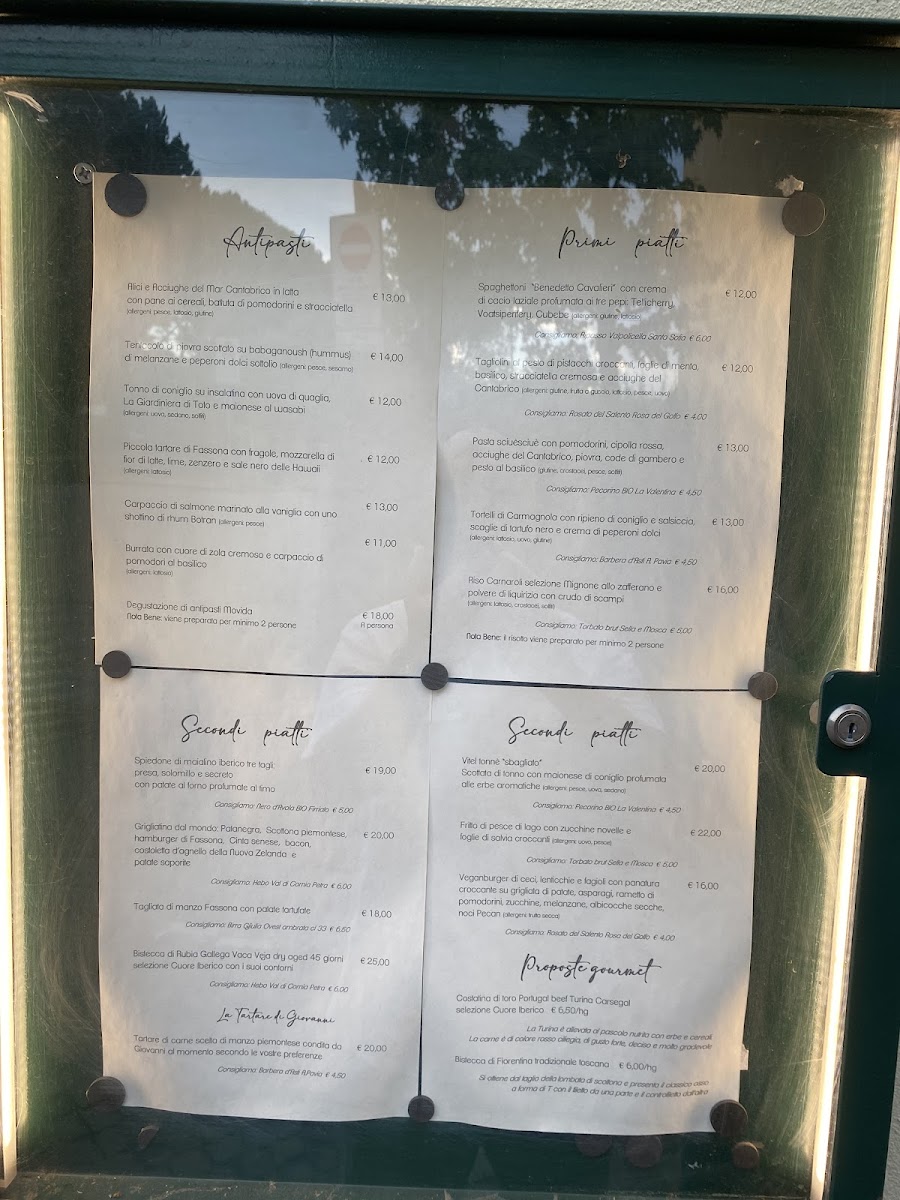 Antipasti
Alici e Acciughe del Mar Cantabrico in latta
con pane ai cereali, battuta di pomodorini e stracciatella € 13,00
(allergeni: pesce, lattosio, glutine)
Tentacolo di piovra scottato su babaganoush (hummus) € 14,00
di melanzane e peperoni dolci sottolio (allergeni: pesce, sesamo)
Tonno di coniglio su insalatina con uova di quaglia, € 12,00
La Giardiniera di Toto e maionese al wasabi
(allergeni: uovo, sedano, solfiti)
Piccola tartare di Fassona con fragole, mozzarella di € 12,00
fior di latte, lime, zenzero e sale nero delle Hawaii
(allergeni: lattosio)
Carpaccio di salmone marinato alla vaniglia con uno € 13,00
shottino di rhum Botran (allergeni: pesce)
€ 11,00
Burrata con cuore di zola cremoso e carpaccio di
pomodori al basilico
(allergeni: lattosio)
Degustazione di antipasti Movida € 18,00
Nota Bene: viene preparata per minimo 2 persone A persona
Primi piatti
Spaghettoni "Benedetto Cavalieri" con crema € 12,00
di cacio laziale profumata ai tre pepi: Tellicherry,
Voatsiperifery, Cubebe (allergeni: glutine, lattosio)
Consigliamo: Ripasso Valpolicella Santa Sofia € 6,00
Tagliolini al pesto di pistacchi croccanti, foglie di menta, € 12,00
basilico, stracciatella cremosa e acciughe del
Cantabrico (allergeni: glutine, frutta a guscio, lattosio, pesce, uovo)
Consigliamo: Rosato del Salento Rosa del Golfo € 4,00
Pasta sciuèsciuè con pomodorini, cipolla rossa, € 13,00
acciughe del Cantabrico, piovra, code di gambero e
pesto al basilico (glutine, crostacei, pesce, solfiti)
Consigliamo: Pecorino BIO La Valentina € 4,50
Tortelli di Carmagnola con ripieno di coniglio e salsiccia, € 13,00
scaglie di tartufo nero e crema di peperoni dolci
(allergeni: lattosio, uovo, glutine)
Consigliamo: Barbera d'Asti A. Pavia € 4,50
Riso Carnaroli selezione Mignone allo zafferano e € 16,00
polvere di liquirizia con crudo di scampi
(allergeni: lattosio, crostacei, solfiti)
Consigliamo: Torbato brut Sella e Mosca € 5,00
Nota Bene: il risotto viene preparato per minimo 2 persone
Secondi piatti
Spiedone di maialino iberico tre tagli: € 19,00
presa, solomillo e secreto
con patate al forno profumate al timo
Consigliamo: Nero d'Avola BIO Firriato € 5,00
Grigliatina dal mondo: Palanegra, Scottona piemontese, € 20,00
hamburger di Fassona, Cinta senese, bacon,
costoletta d'agnello della Nuova Zelanda e
patate saporite
Consigliamo: Hebo Val di Cornia Petra € 6,00
Tagliata di manzo Fassona con patate tartufate € 18,00
Consigliamo: Birra Gjulia Ovest ambrata cl 33 € 6,50
Bistecca di Rubia Gallega Vaca Vieja dry aged 45 giorni € 25,00
selezione Cuore Iberico con i suoi contorni
Consigliamo: Hebo Val di Cornia Petra € 6,00
La Tartare di Giovanni
Tartare di carne scelta di manzo piemontese condita da € 20,00
Giovanni al momento secondo le vostre preferenze
Consigliamo: Barbera d'Asti A.Pavia € 4,50
Secondi piatti
Vitel tonnè "sbagliato" € 20,00
Scottata di tonno con maionese di coniglio profumata
alle erbe aromatiche (allergeni: pesce, uova, sedano)
Consigliamo: Pecorino BIO La Valentina € 4,50
Fritto di pesce di lago con zucchine novelle e € 22,00
foglie di salvia croccanti (allergeni: uovo, pesce)
Consigliamo: Torbato brut Sella e Mosca € 5,00
Veganburger di ceci, lenticchie e fagioli con panatura € 16,00
croccante su grigliata di patate, asparagi, rametto di
pomodorini, zucchine, melanzane, albicocche secche,
noci Pecan (allergeni: frutta secca)
Consigliamo: Rosato del Salento Rosa del Golfo € 4,00
Proposte gourmet
Costatina di toro Portugal beef Turina Carsegal
selezione Cuore Iberico € 6,50/hg
La Turina è allevata al pascolo nutrita con erbe e cereali.
La carne è di colore rosso ciliegia, di gusto forte, deciso e molto gradevole
Bistecca di Fiorentina tradizionale toscana € 6,00/hg
Si ottiene dal taglio della lombata di scottona e presenta il classico osso
a forma di T con il filetto da una parte e il controfiletto dall'altra